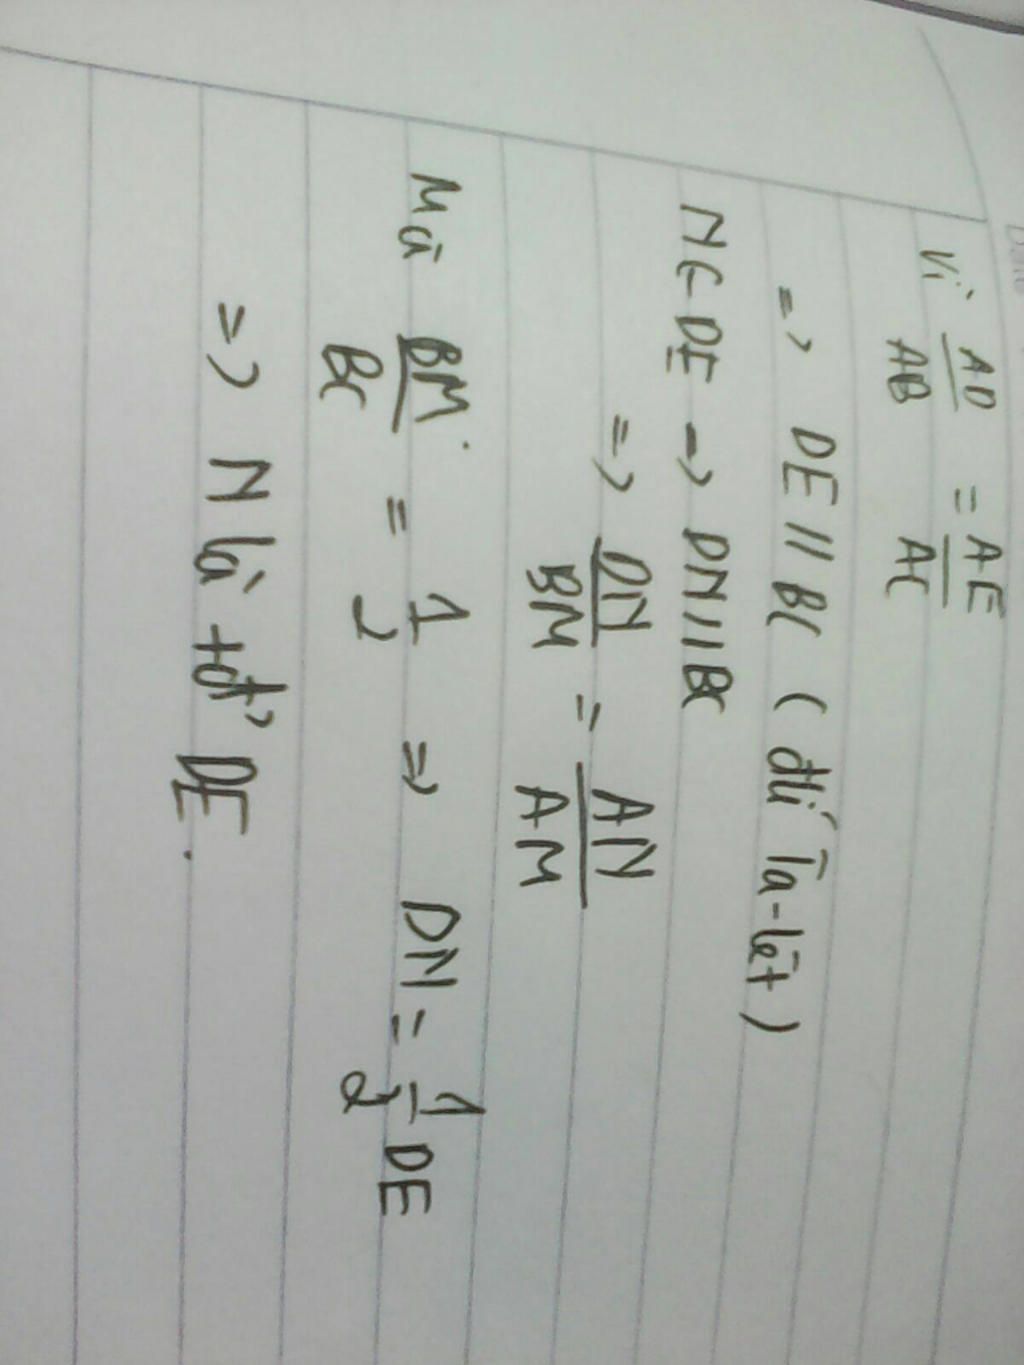 Vì AD/AB = AE/AC
=> DE // BC (đlí Ta-lét)
N ∈ DE -> DN // BC
=> DN/BM = AN/AM
Mà BM/BC = 1/2 => DN = 1/2 DE
=> N là tđ' DE.